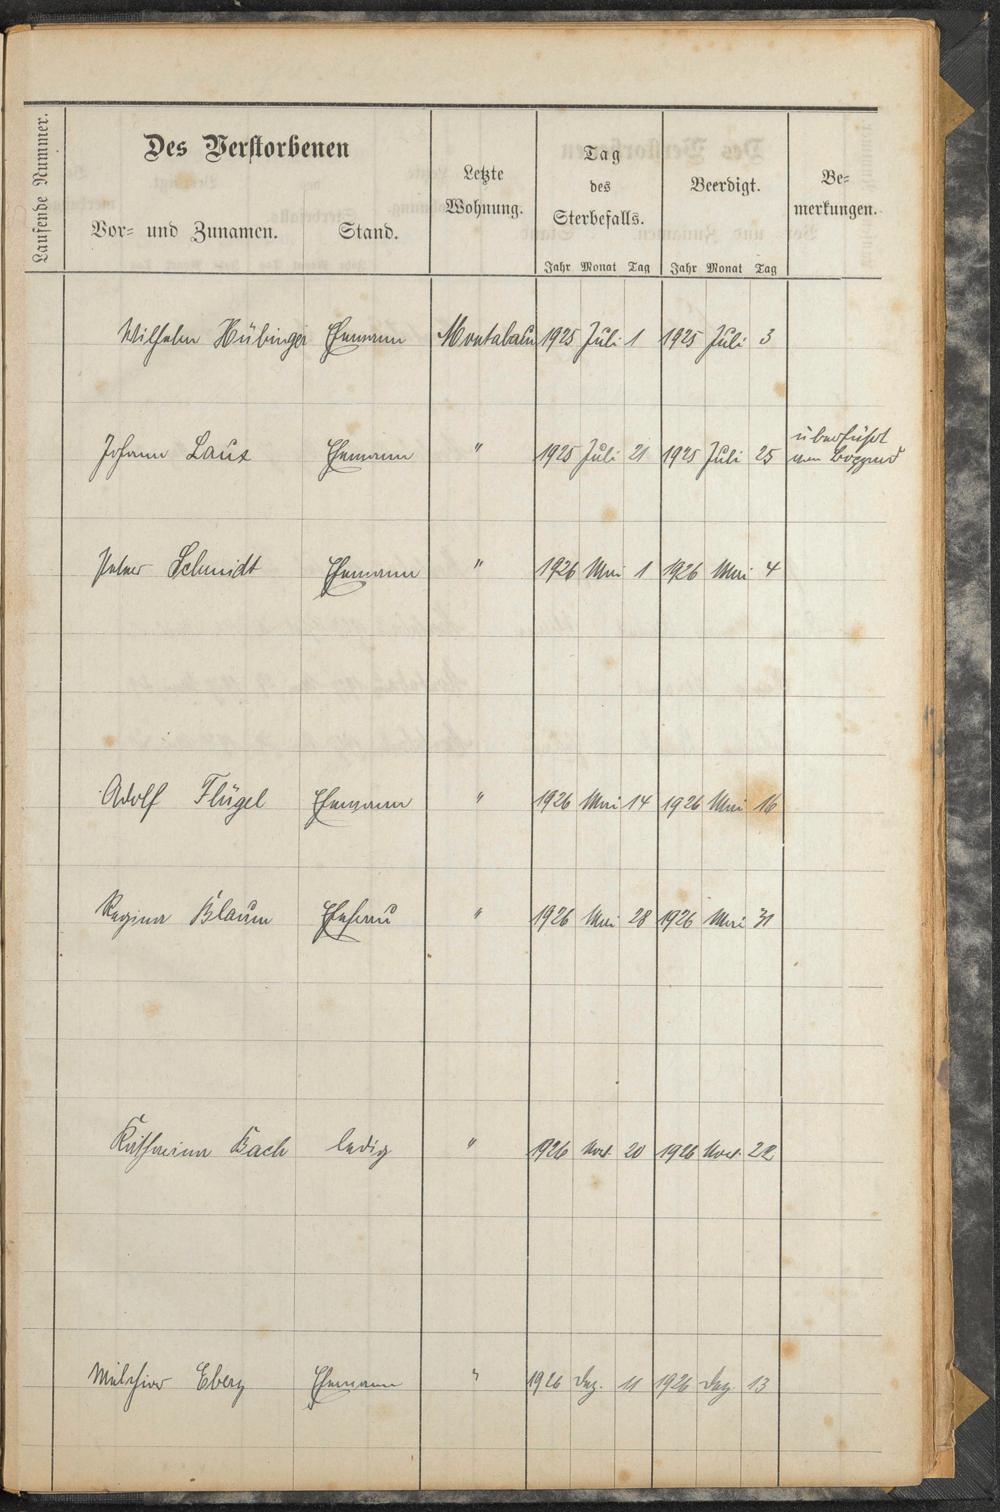 Laufende Nummer.
Des Verstorbenen
Vor- und Zunamen.
Stand.
Letzte
Wohnung.
Tag
des
Sterbefalls.
Beerdigt.
Be-
merkungen.
Jahr Monat Tag Jahr Monat Tag
Wilhelm Hübinger Ehemann Montabaur 1925 Juli 1 1925 Juli 3
Johann Laux Ehemann " 1925 Juli 21 1925 Juli 25 überführt
Peter Schmidt Ehemann " 1926 Mai 1 1926 Mai 4
Adolf Flügel Ehemann " 1926 Mai 14 1926 Mai 16
Regina Blaum Ehefrau " 1926 Mai 28 1926 Mai 31
Katharina Bach ledig " 1926 Nov. 20 1926 Nov. 22
Melchior Ebery Ehemann " 1926 Dez. 11 1926 Dez. 13